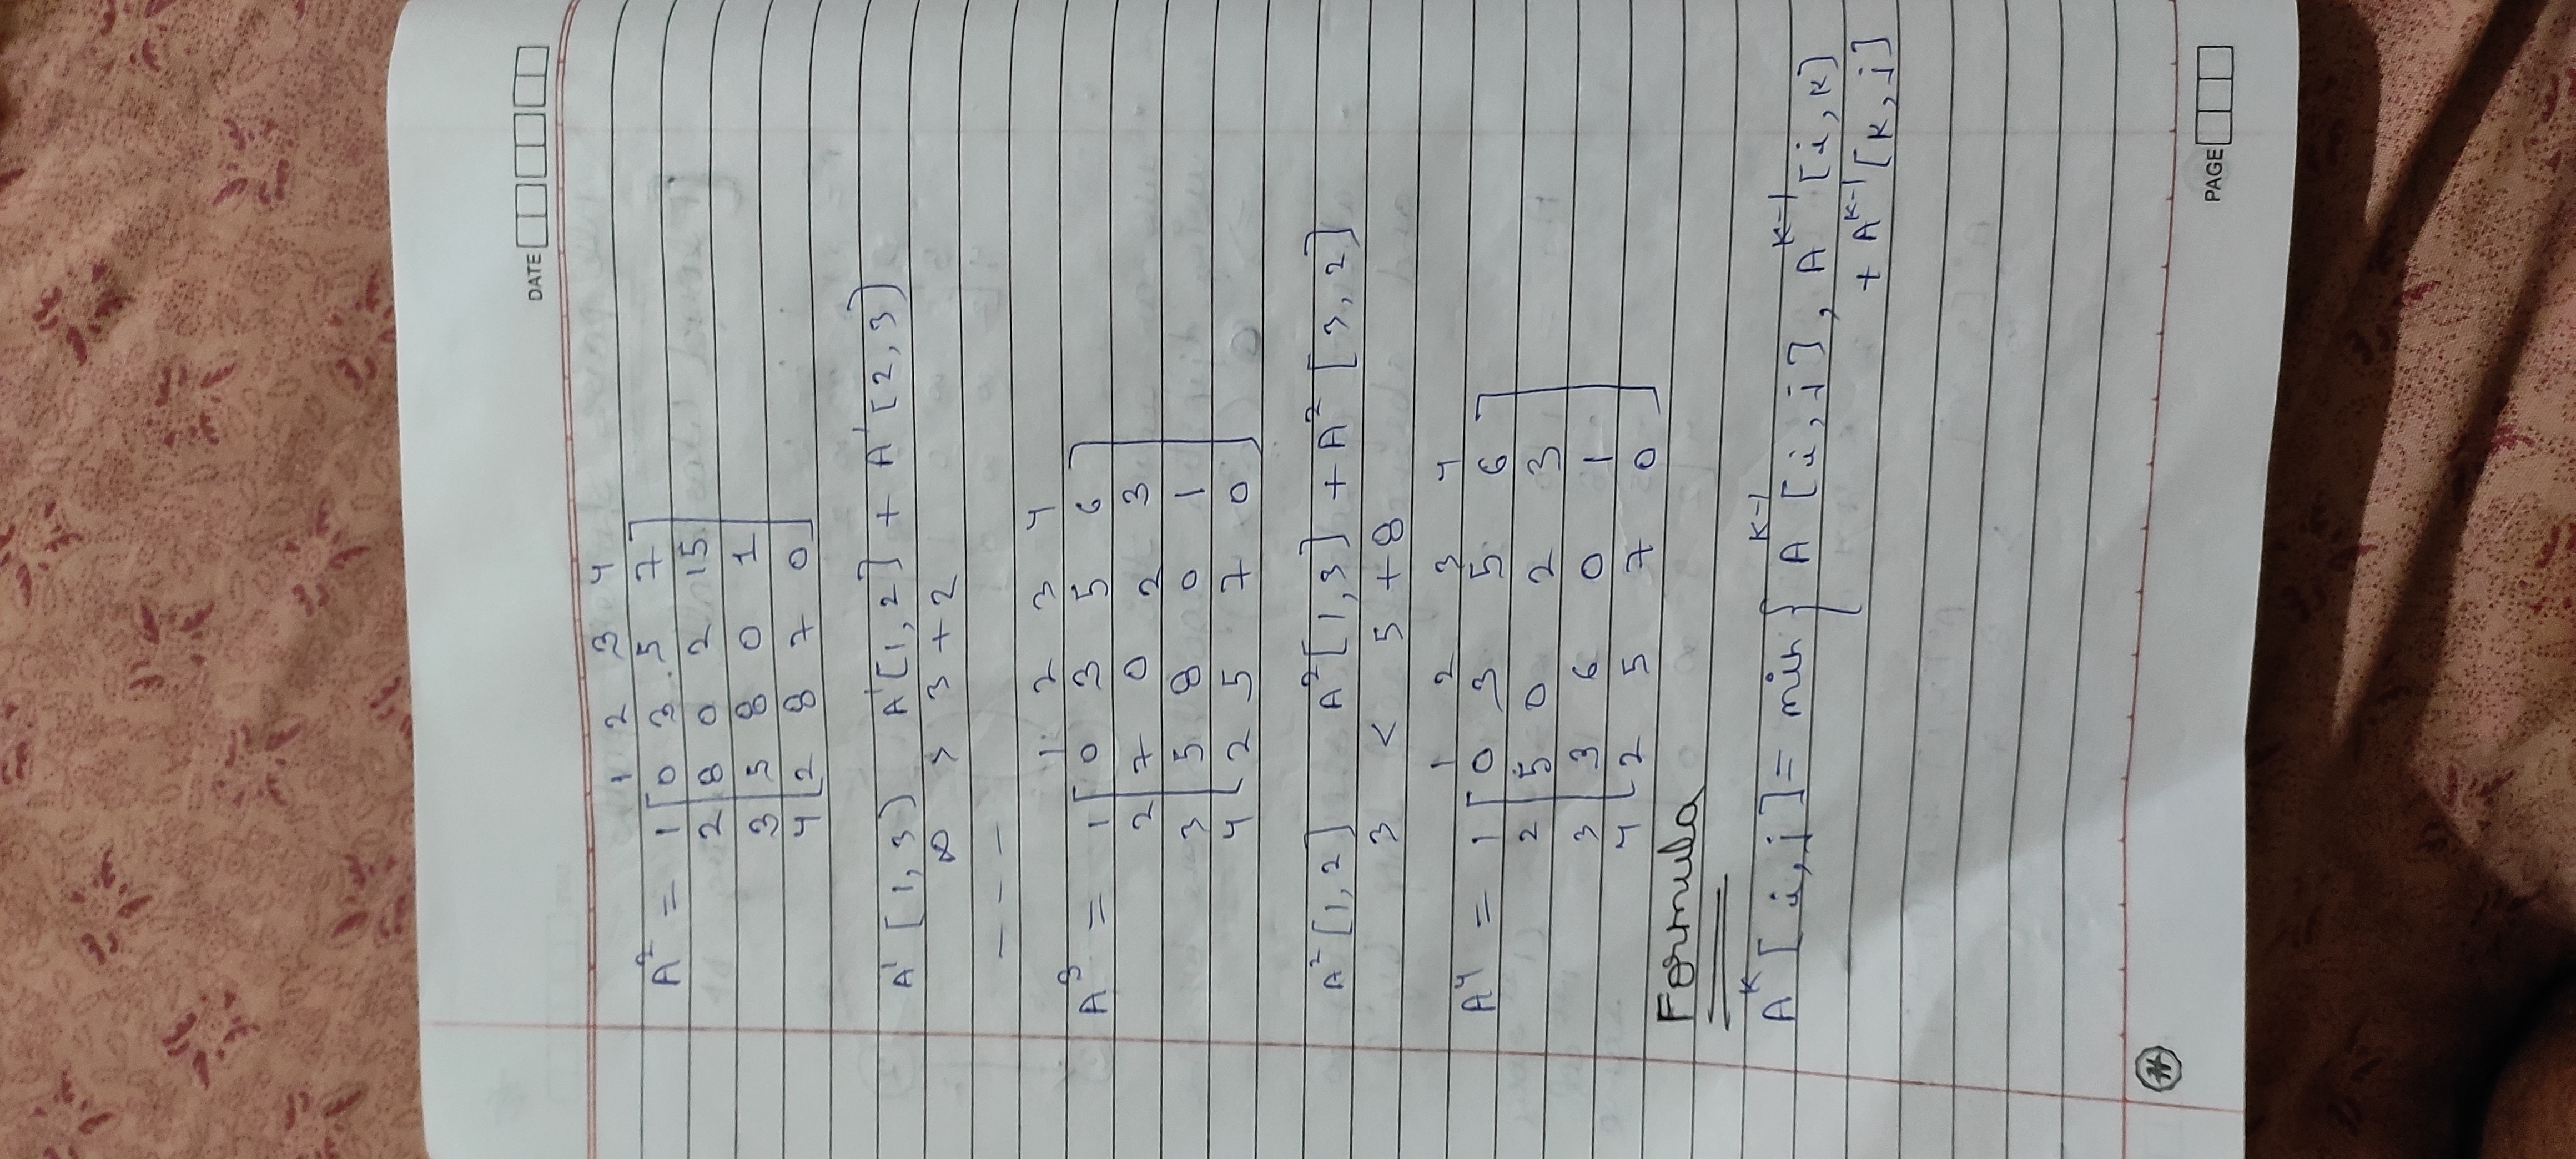 DATE
1 2 3 4
A² = 1 [ 0 3 5 7 ]
2 8 0 2 15
3 5 8 0 1
4 2 8 7 0
A¹ [1,3) A¹[1,2] + A¹[2,3]
∞ > 3+2
- - -
1 2 3 4
A³ = 1 [ 0 3 5 6 ]
2 7 0 2 3
3 5 8 0 1
4 2 5 7 0
A²[1,2] A²[1,3] + A² [3,2]
3 < 5+8
1 2 3 4
A⁴ = 1 [ 0 3 5 6 ]
2 5 0 2 3
3 3 6 0 1
4 2 5 7 0
Formula
A^K [i,j] = min { A^K-1 [i,j], A^K-1 [i,K]
+ A^K-1 [K,j]
PAGE